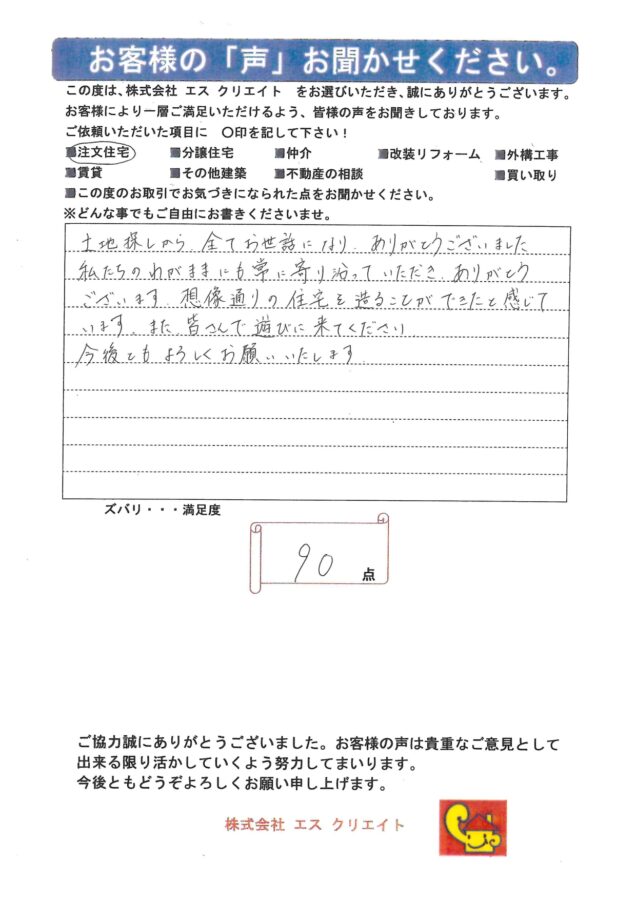 お客様の「声」お聞かせください。
この度は、株式会社 エス クリエイト をお選びいただき、誠にありがとうございます。
お客様により一層ご満足いただけるよう、皆様の声をお聞きしております。
ご依頼いただいた項目に 〇印を記して下さい！
■注文住宅 ■分譲住宅 ■仲介 ■改装リフォーム ■外構工事
■賃貸 ■その他建築 ■不動産の相談 ■買い取り
■この度のお取引でお気づきになられた点をお聞かせください。
※どんな事でもご自由にお書きくださいませ。
土地探しから、全てお世話になり、ありがとうございました
私たちのわがままにも常に寄り沿っていただき、ありがとう
ございます。想像通りの住宅を造ることができたと感じて
います。また、皆さんで遊びに来てください
今後ともよろしくお願いいたします
ズバリ・・・満足度
90 点
ご協力誠にありがとうございました。お客様の声は貴重なご意見として
出来る限り活かしていくよう努力してまいります。
今後ともどうぞよろしくお願い申し上げます。
株式会社 エス クリエイト